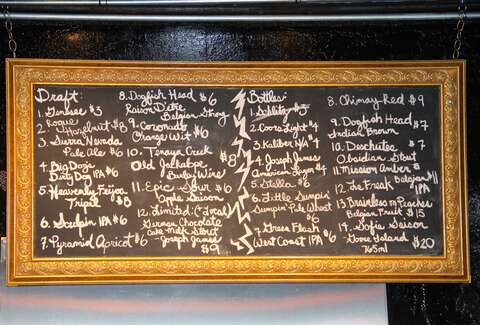 Draft:
1. Genesee $3
2. Rogue's
Hazelnut $8
3. Sierra Nevada
Pale Ale $6
4. Big Daddy
Dirty Dog IPA $6
5. Heavenly Feijoa
Tripel $8
6. Sculpin IPA $6
7. Pyramid Apricot $6
8. Dogfish Head $6
Raison D'etre
Belgian Strong
9. Coronado
Orange Wit $6
10. Teraya Creek
Old Jackalope $8
Barley Wine
11. Epic Sour $6
Apple Saison
12. Limited: (Local)
Guinea Chocolate
Cake Milk Stout
-Joseph James
$9
Bottles:
1. Schlitz $3
2. Coors Light $4
3. Kaliber N/A $4
4. Joseph James
American Lager $4
5. Stella $6
6. Little Sumpin'
Sumpin' Pale Wheat
$6
7. Green Flash
West Coast IPA $6
8. Chimay Red $9
9. Dogfish Head $7
Indian Brown
10. Deschutes $7
Obsidian Stout
11. Mission Amber $6
12. The Freak Belgian $11
IPA
13. Brainless on Peaches
Belgian Fruit $15
14. Sofie Saison
Goose Island $20
765ml